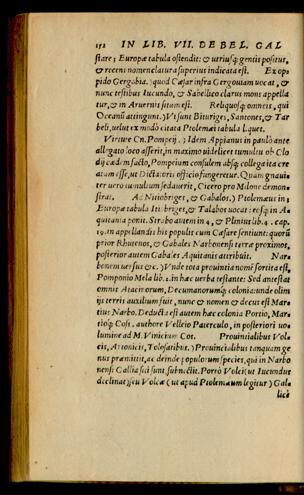 152 IN LIB. VII. DE BEL. GAL
stare; Europæ tabula ostendit: & utriusq; gentis positus,
& recens nomenclatura superius indicata est. Ex op⸗
pido Gergobia.) quod Cæsar infra Gergouiam uocat, &
nunc testibus Iucundo, & Sabellico clarus mons appella
tur, & in Aruernis situm est. Reliquosq; omneis, qui
Oceanũ attingunt.) Vt sunt Bituriges, Santones, & Tar
beli, uelut ex modò citata Ptolemæi tabula liquet.
Virtute Cn. Pompeij.) Idem Appianus in paulò ante
allegato loco asserit, in maximo uidelicet tumultu ob Clo
dij cædem facto, Pompeium consulem absq; collega ita cre
atum esse, ut Dictatoris officio fungeretur. Quam gnaui⸗
ter uero tumultum sedauerit, Cicero pro Milone demon⸗
strat. Ad Nitiobriges, & Gabalos.) Ptolemæus in 3
Europæ tabula Itiobriges, & Talabos uocat: eosq; in A⸗
quitania ponit. Strabo autem in 4, & Plinius lib. 4. cap.
19. in appellandis his populis cum Cæsare sentiunt: quorũ
prior Rhutenos, & Gabales Narbonensi terræ proximos,
posterior autem Gabales Aquitanis attribuit. Nar⸗
bonem uersus &c.) Vnde tota prouintia nomẽ sortita est,
Pomponio Mela lib. 2. in hæc uerba testante: Sed antestat
omnis Atacinorum, Decumanorumq; colonia: unde olim
ijs terris auxilium fuit, nunc & nomen & decus est Mar⸗
tius Narbo. Deducta est autem hæc colonia Portio, Mar⸗
tioq; Coss. authore Velleio Paterculo, in posteriori uo⸗
lumine ad M. Vinicium Cos. Prouintialibus Vol⸗
cis, Areomicis, Tolosatibus.) Prouintialibus tanquam ge⸗
nus præmittit, ac deinde populorum species, qui in Narbo
nensi Gallia siti sunt, subnectit. Porrò Volci (ut Iucundus
declinat) seu Volcæ (ut apud Ptolemæum legitur) Gal⸗
licè